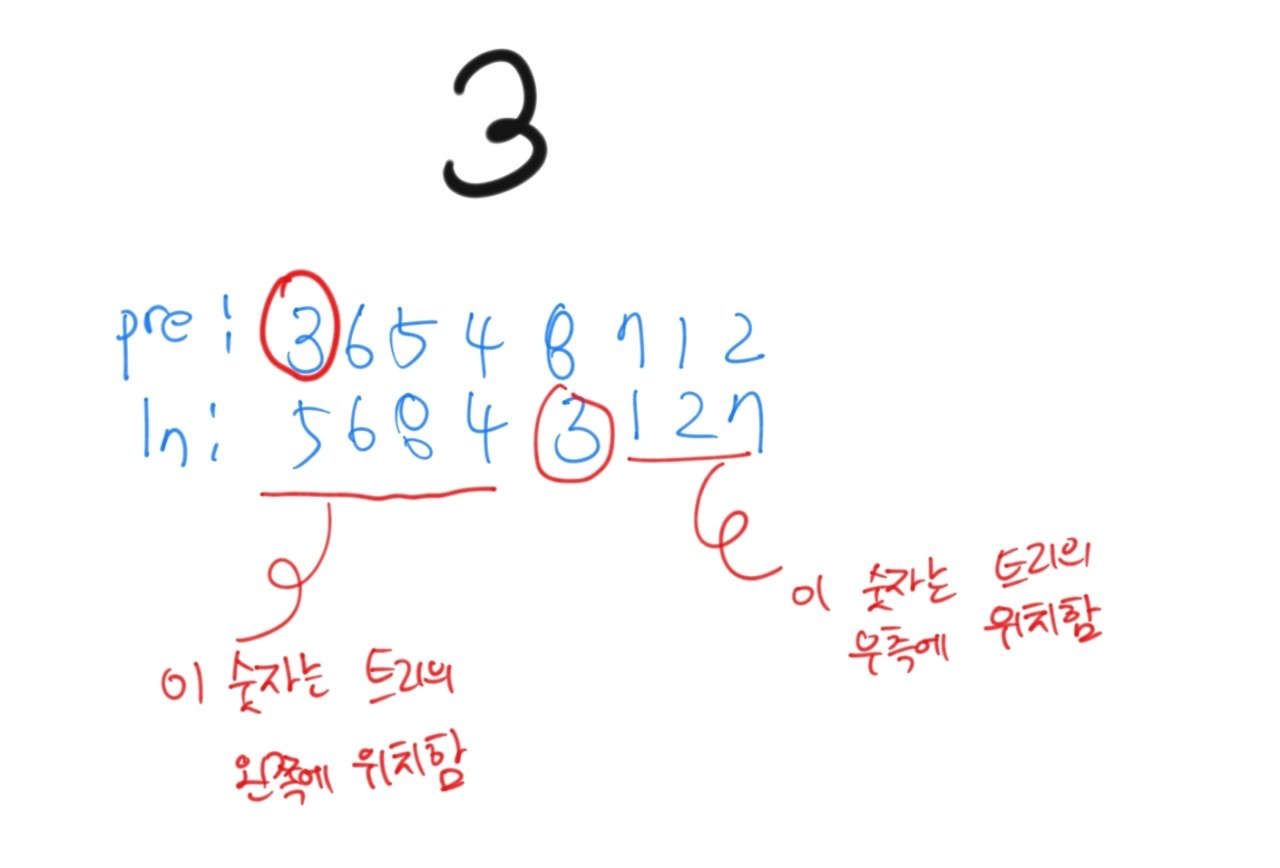 3
pre: 3 6 5 4 8 7 1 2
In: 5 6 8 4 3 1 2 7
이 숫자는 트리의
우측에 위치함
이 숫자는 트리의
왼쪽에 위치함